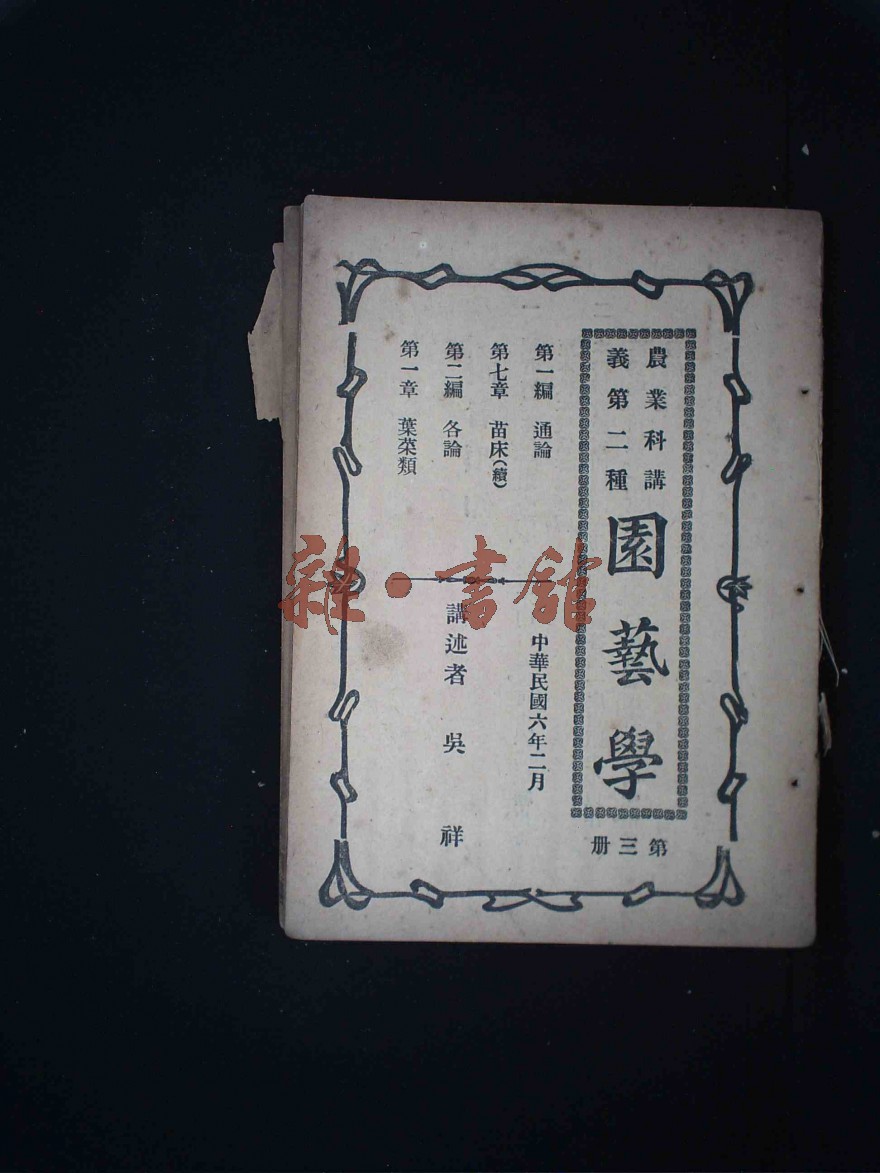 農業科講
義第二種
園藝學
第三册
第一編 通論
第七章 苗床(續)
第二編 各論
第一章 葉菜類
中華民國六年二月
講述者 吳祥
雜·書館